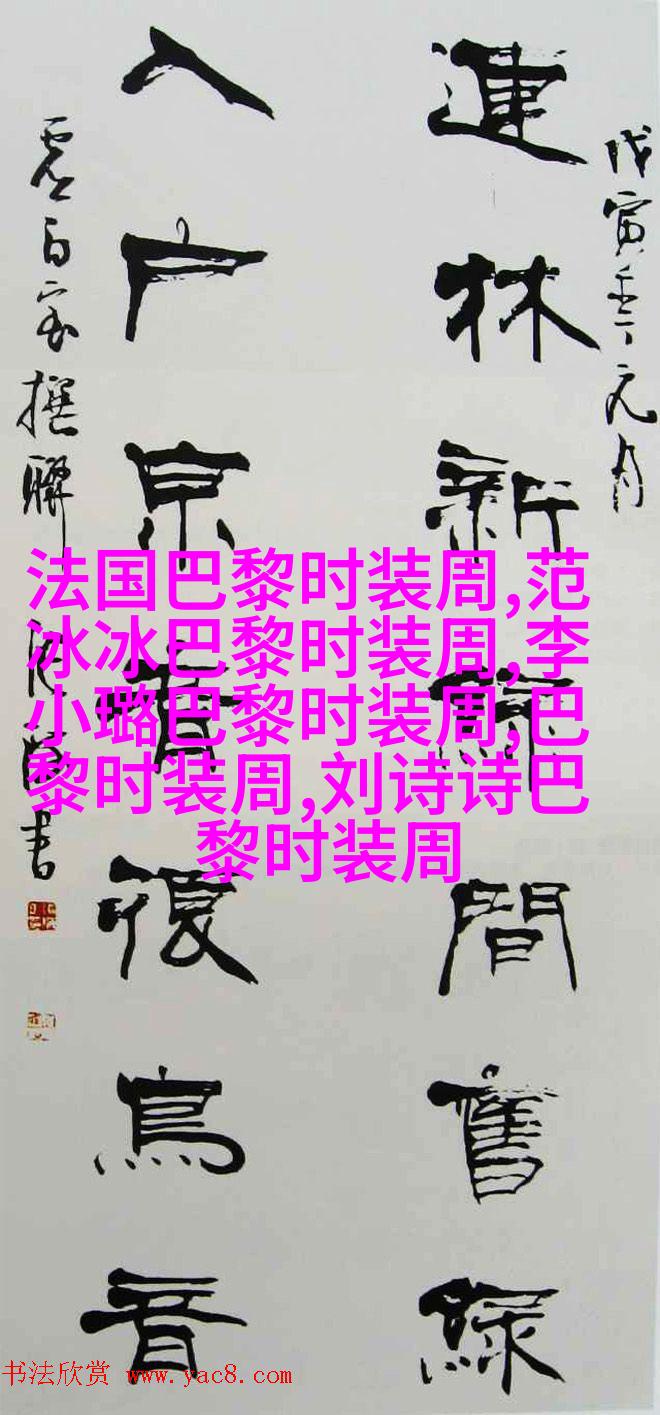 戊寅年元月
連林新間舊綠
入户鳥音
撰聯書
法国巴黎时装周,范
冰冰巴黎时装周,李
小璐巴黎时装周,巴
黎时装周,刘诗诗巴
黎时装周
书法欣赏 www.yac8.com